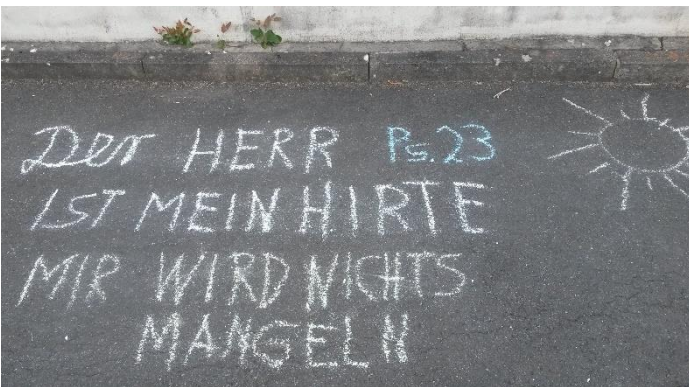 Der HERR Ps. 23
IST MEIN HIRTE
MIR WIRD NICHTS
MANGELN